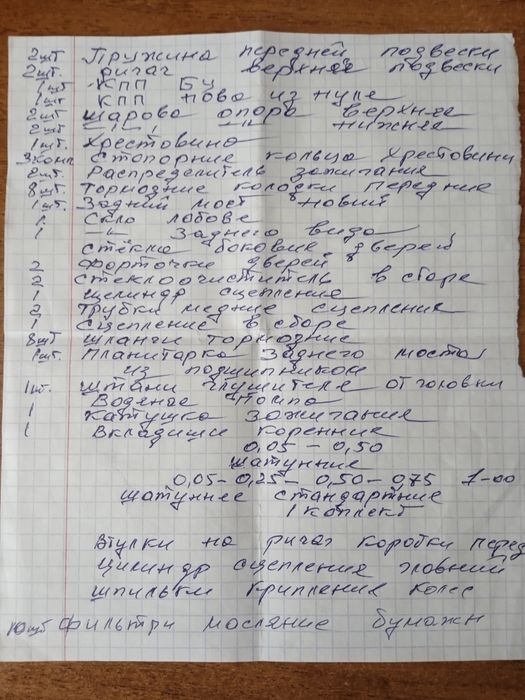 2шт Пружина передней подвески
2шт. ричаг верхнее подвески
1шт КПП БУ
1шт КПП нова из нуле
2шт шарова опора верхнее
2шт —"— —"— нижнее
1шт. Хрестовина
3комп Стопорние кольца Хрестовини
2шт. Распределитель зажигания
8шт Тормозние колодки передние
1шт. Задний мост новий
1. Скло лобове
1 —"— Заднего вида
стёкла боковие дверей
2 Форточки дверей
2 стеклоочиститель в сборе
1 цилиндр сцепления
2 Трубки медние сцепления
1 Сцепление в сборе
8шт шланги тормозние
1шт. Планитарка Заднего моста
из подшипником
1шт. Штани глушителя от головки
1 Водяное помпа
1 Каттушка зажигания
1 Вкладиши коренние
0,05 – 0,50
шатунние
0,05 – 0,25 – 0,50 – 0,75 1-00
шатуннее стандартние
1 коплект
Втулки на ричаг коробки перед
Цилиндр сцепления гловний
шпильки крипления колес
10шт Фильтри мосляние бумажн